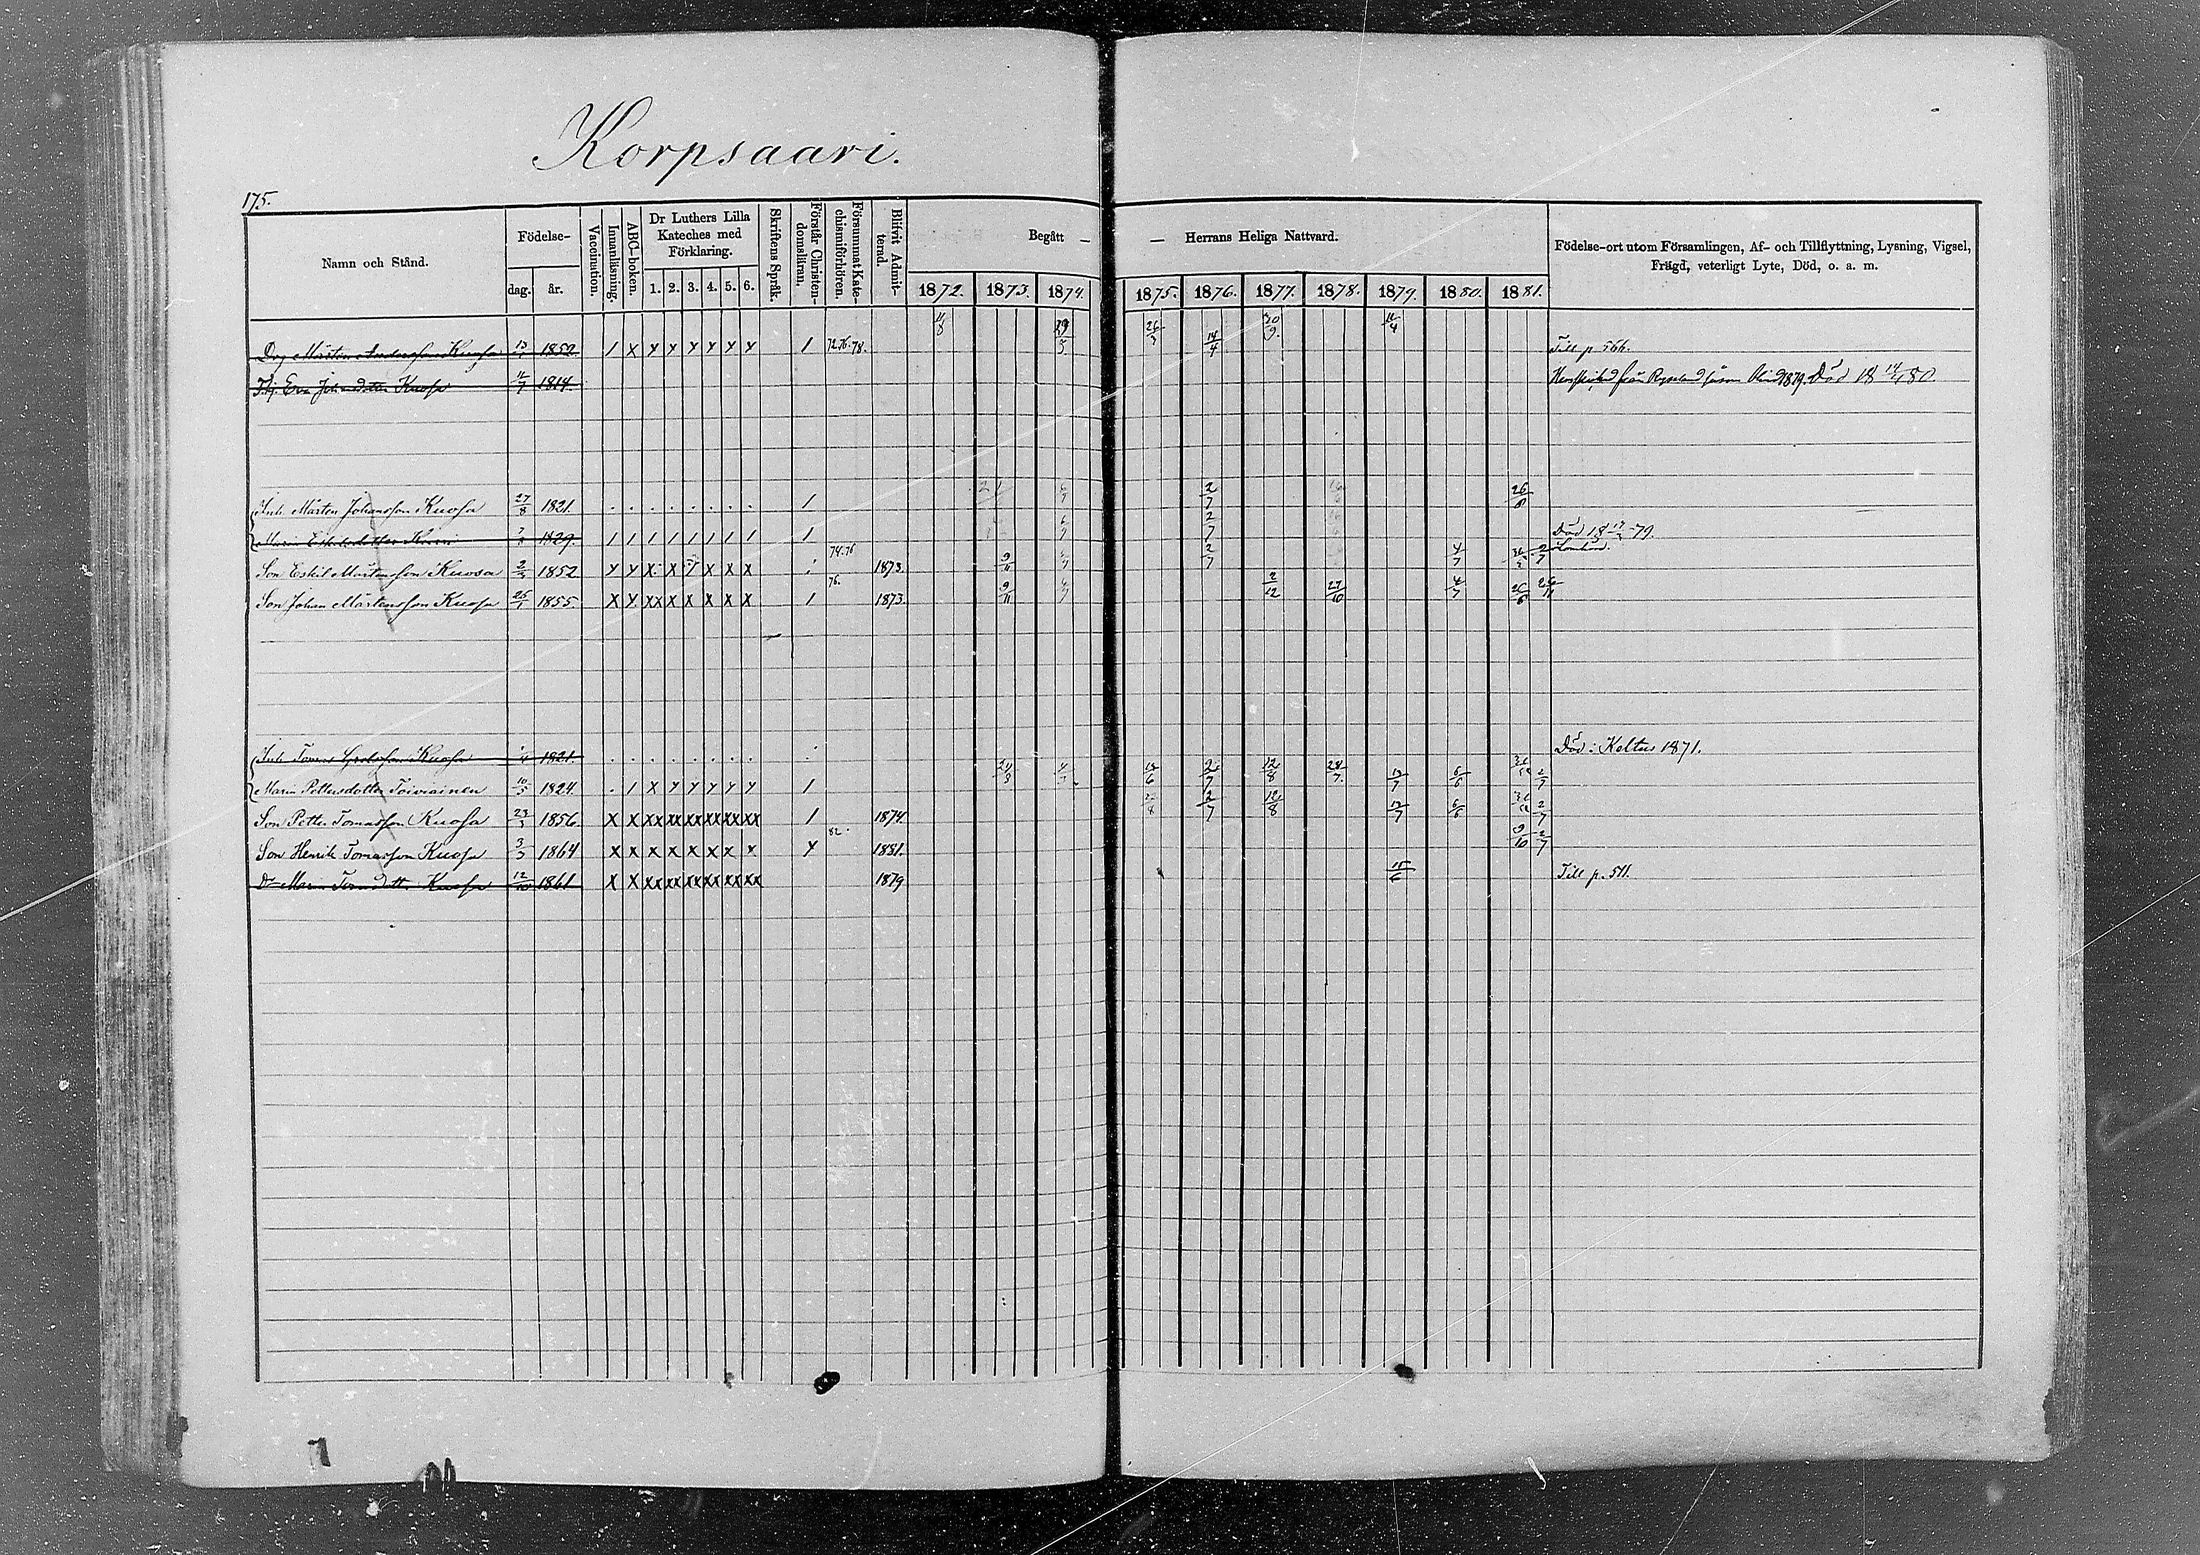 Korpsaari.
175.
Namn och Stånd. Födelse- dag. år. Vaccination. Innanläsning. ABC-boken. Dr Luthers Lilla Kateches med Förklaring. 1. 2. 3. 4. 5. 6. Skriftens Språk. Förstår Christendomsläran. Försummat Katechismiförhören. Blifvit Admitterad. Begått — — Herrans Heliga Nattvard. 1872. 1873. 1874. 1875. 1876. 1877. 1878. 1879. 1880. 1881. Födelse-ort utom Församlingen, Af- och Tillflyttning, Lysning, Vigsel, Frägd, veterligt Lyte, Död, o. a. m.
Drg Mårten Andersson Kuosa 1852 / x y y y y y y / 72.76.78. 11/8 14/4 30/9 Till p 566.
Eva Johansdotter Kuosa 11/7 1814. från Ryssland såsom Blind 1879. Död 18 80.
Inh. Mårten Johansson Kuosa 27/8 1821. . . . . . . . . / 6/7 2/7 26/8
Maria Eskelsdotter 1829. / / / / / / / / / 6/7 2/7 Död 18 79.
Son Eskil Mårtensson Kuosa 1852 y y x x x x x 74.76 1873. 9/11 2/7 4/7 2/7
Son Johan Mårtensson Kuosa 1855. x y xx x x x x x / 76. 1873 9/11 2/12 27/10 4/7 26/8
Inh. Tomas Kuosa 1821. . . . . . . . . Död i Keltus 1871.
Maria Pettersdotter Toiviainen 10/5 1824 . / x y y y y y / 2/7 12/8 28/7. 13/7 6/6 2/7
Son Petter Tomasson Kuosa 23/3 1856. x x xx xx xx xx xx xx / 1874 2/7 12/8 13/7 6/6 2/7
Son Henrik Tomasson Kuosa 3/3 1864 x x x x x x x x y 82. 1881. 9/10 2/7
Dr Maria Tomasdotter Kuosa 12/10 1861 x x xx xx xx xx xx xx 1879 15/6 Till p. 511.